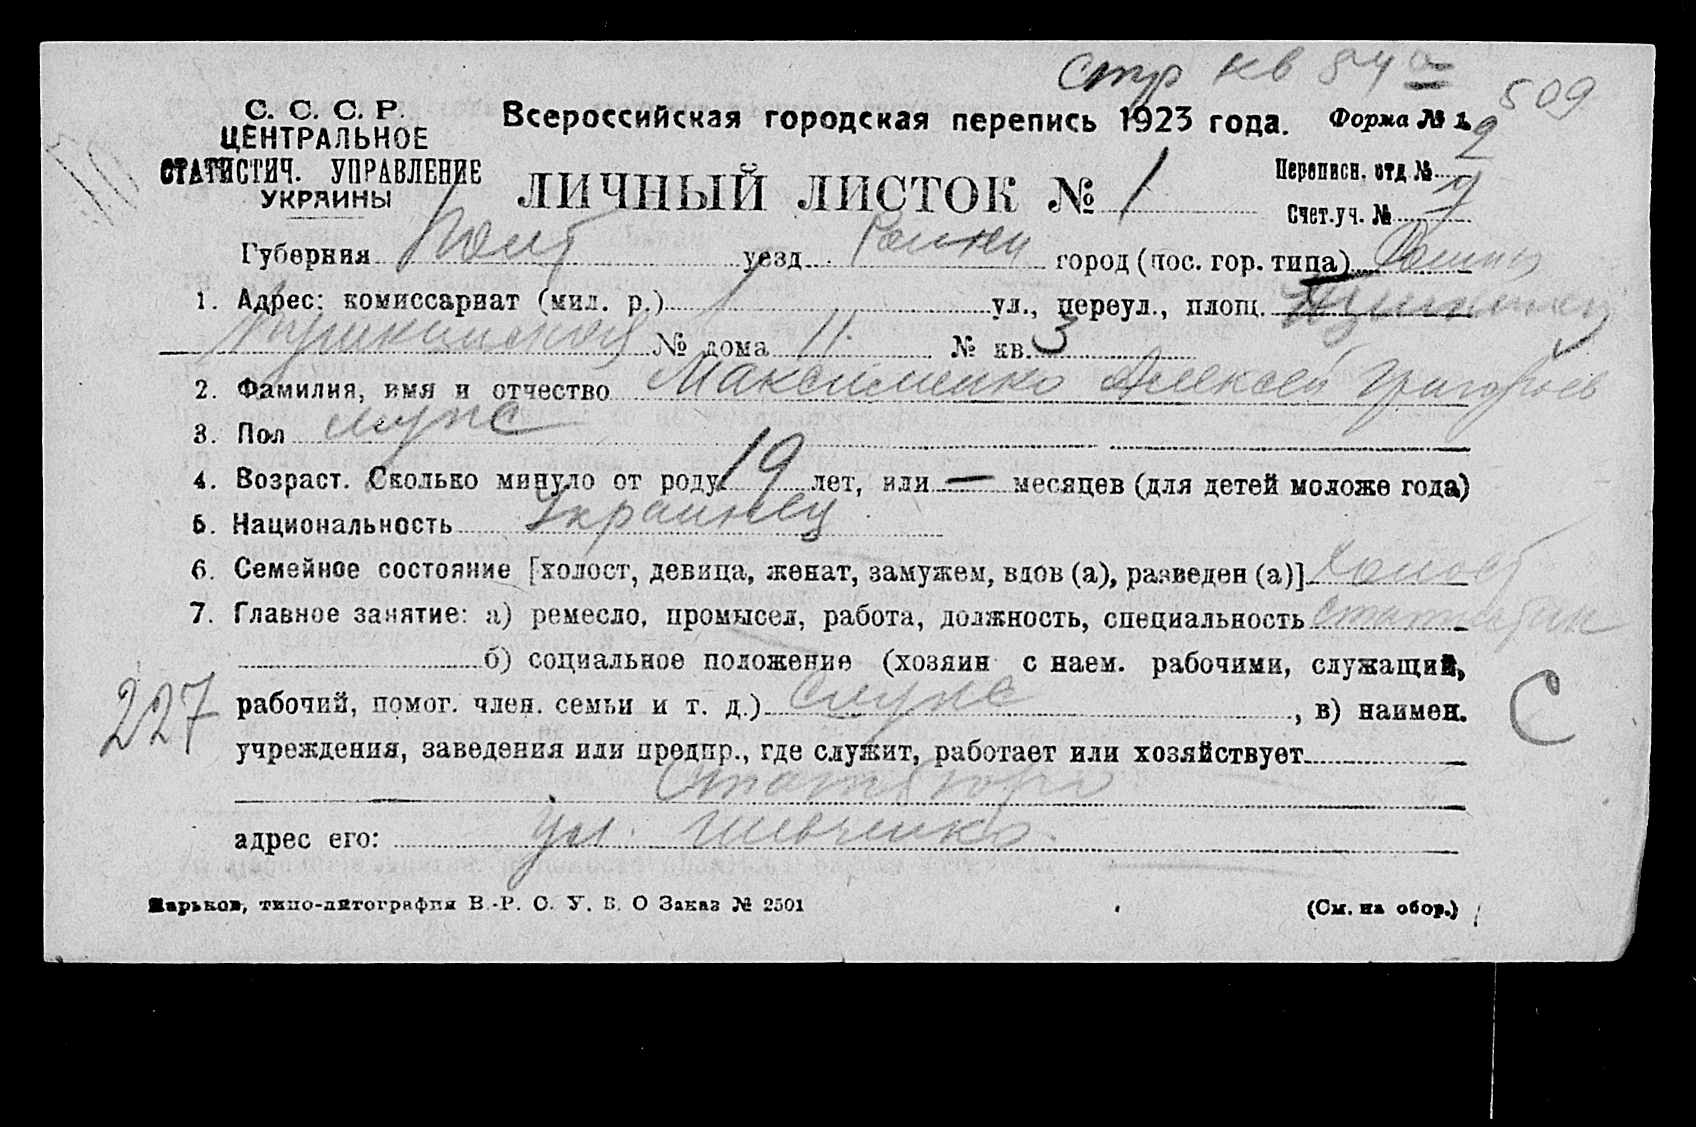 Стр кв 84а
509
С. С. С. Р.
ЦЕНТРАЛЬНОЕ
СТАТИСТИЧ. УПРАВЛЕНИЕ
УКРАИНЫ
Всероссийская городская перепись 1923 года. Форма № 1.
ЛИЧНЫЙ ЛИСТОК № 1
Переписн. отд. № 2
Счет. уч. №
Губерния Полт уезд Ромны город (пос. гор. типа) Ромны
1. Адрес: комиссариат (мил. р.) ул., переул., площ.
Пушкинская № дома 11. № кв. 3
2. Фамилия, имя и отчество Максименко Алексей Григорьев
3. Пол мужс
4. Возраст. Сколько минуло от роду 19 лет, или — месяцев (для детей моложе года)
5. Национальность Украинец
6. Семейное состояние [холост, девица, женат, замужем, вдов (а), разведен (а)] Холост
7. Главное занятие: а) ремесло, промысел, работа, должность, специальность статистик
б) социальное положение (хозяин с наем. рабочими, служащий,
рабочий, помог. член. семьи и т. д.) служ , в) наимен.
227
С
учреждения, заведения или предпр., где служит, работает или хозяйствует
Статбюро
адрес его: ул. Шевченко.
Харьков, типо-литография В.-Р. С. У. В. О Заказ № 2501
(См. на обор.)